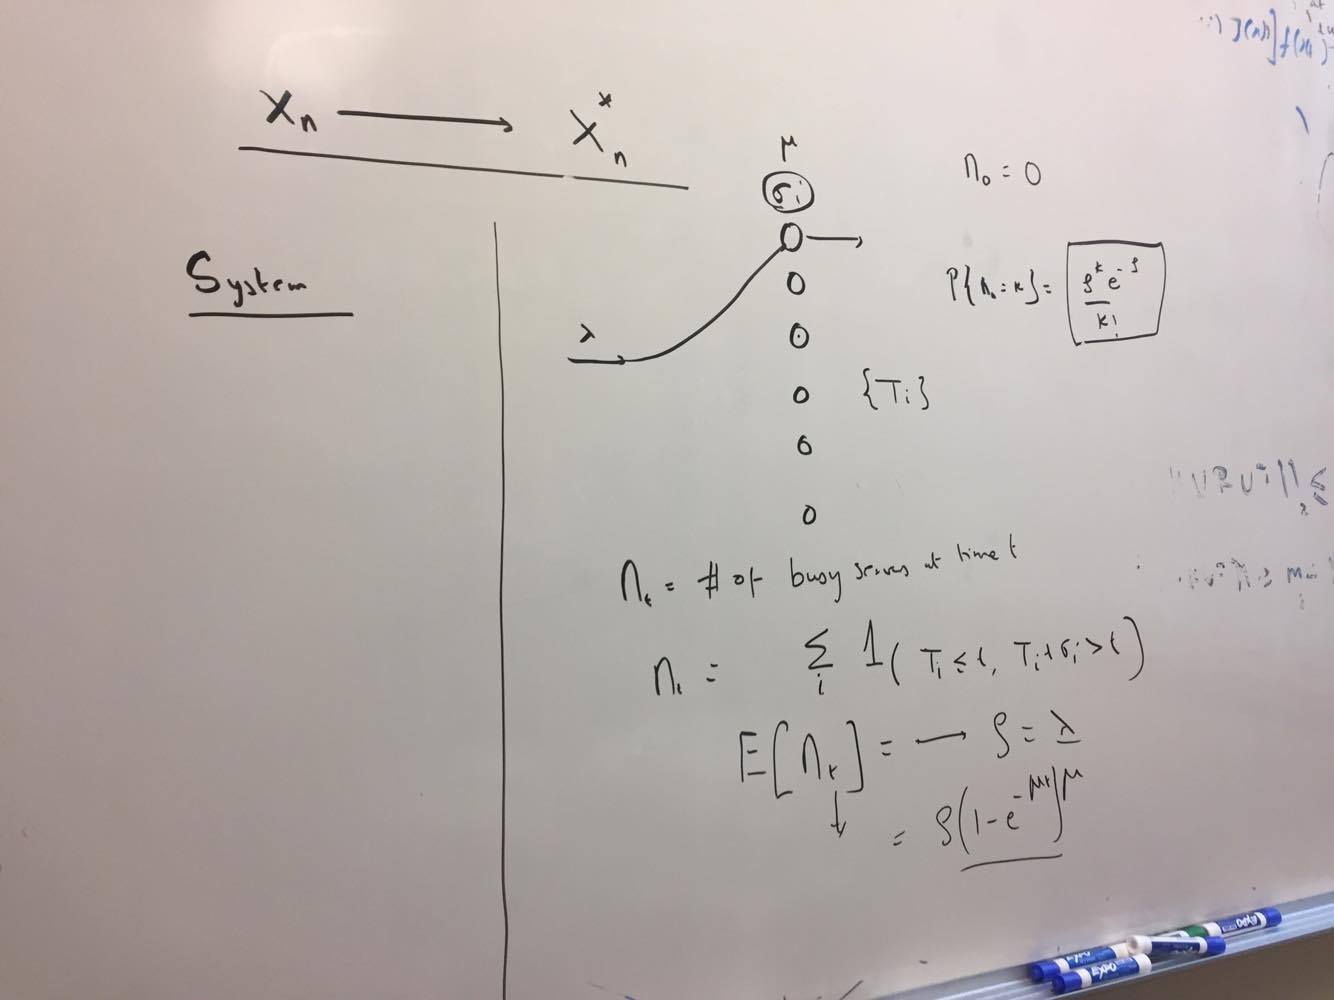 Xₙ ⟶ X*ₙ
System
μ
σᵢ
λ
n₀ = 0
P{n₀ = k} = ρᵏ e^-ρ / k!
{Tᵢ}
nₜ = # of busy servers at time t
nₜ = Σᵢ 1( Tᵢ ≤ t, Tᵢ + σᵢ > t )
E[nₜ] = ⟶ ρ = λ / μ
= ρ(1 - e^-μt)
EXPO
EXPO
EXPO